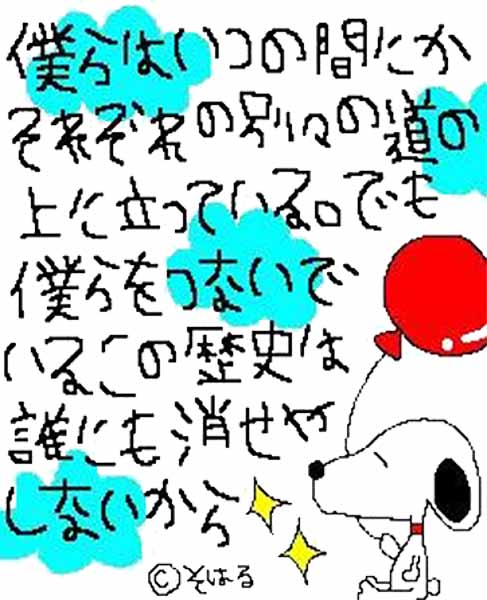 僕らはいつの間にか
それぞれの別々の道の
上に立っている。でも
僕らをつないで
いるこの歴史は
誰にも消せや
しないから
©そはる